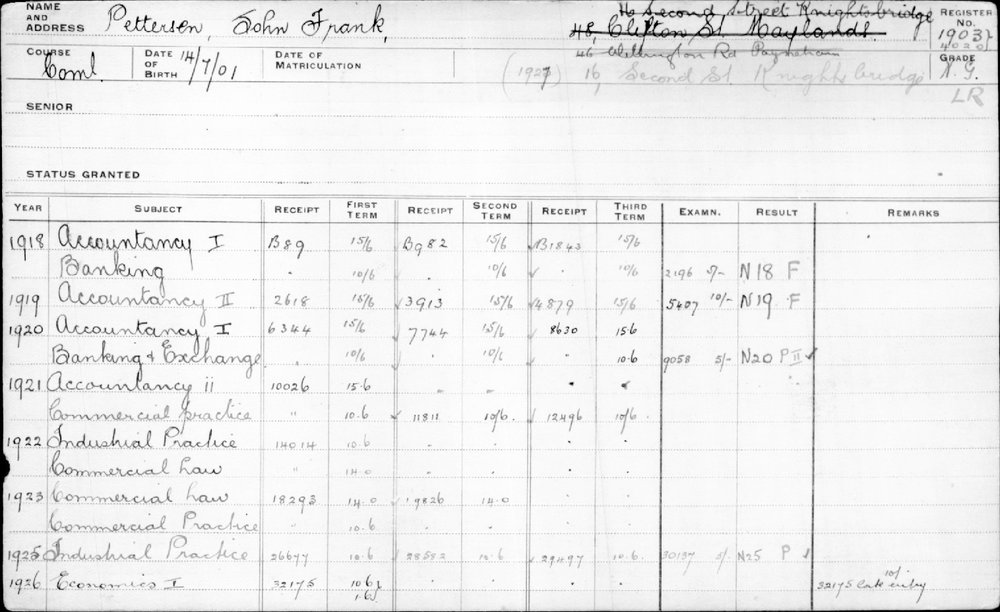 NAME AND ADDRESS Pettersen, John Frank, 16 Second Street Knightsbridge REGISTER No. 1903
48, Clifton St. Maylands. 4020
46 Wellington Rd Payneham
COURSE Coml. DATE OF BIRTH 14/7/01 DATE OF MATRICULATION (1927) 16, Second St Knightsbridge GRADE N.G.
LR
SENIOR
STATUS GRANTED
YEAR SUBJECT RECEIPT FIRST TERM RECEIPT SECOND TERM RECEIPT THIRD TERM EXAMN. RESULT REMARKS
1918 Accountancy I B89 15/6 B982 15/6 B1843 15/6
Banking " 10/6 . 10/6 . 10/6 2196 5/- N18 F
1919 Accountancy II 2618 15/6 3913 15/6 4879 15/6 5407 10/- N19 F
1920 Accountancy I 6344 15/6 7744 15/6 8630 15.6
Banking & Exchange . 10/6 . 10/6 10.6 9058 5/- N20 P II ✓
1921 Accountancy ii 10026 15.6
Commercial practice " 10.6 11811 10/6. 12496 10/6
1922 Industrial Practice 14014 10.6
Commercial Law " 14.0
1923 Commercial Law 18293 14.0 19826 14.0
Commercial Practice " 10.6
1925 Industrial Practice 26677 10.6 28582 10.6 29497 10.6 30137 5/- N25 P ✓
1926 Economics I 32175 10.6 10/-
1.6 32175 late entry